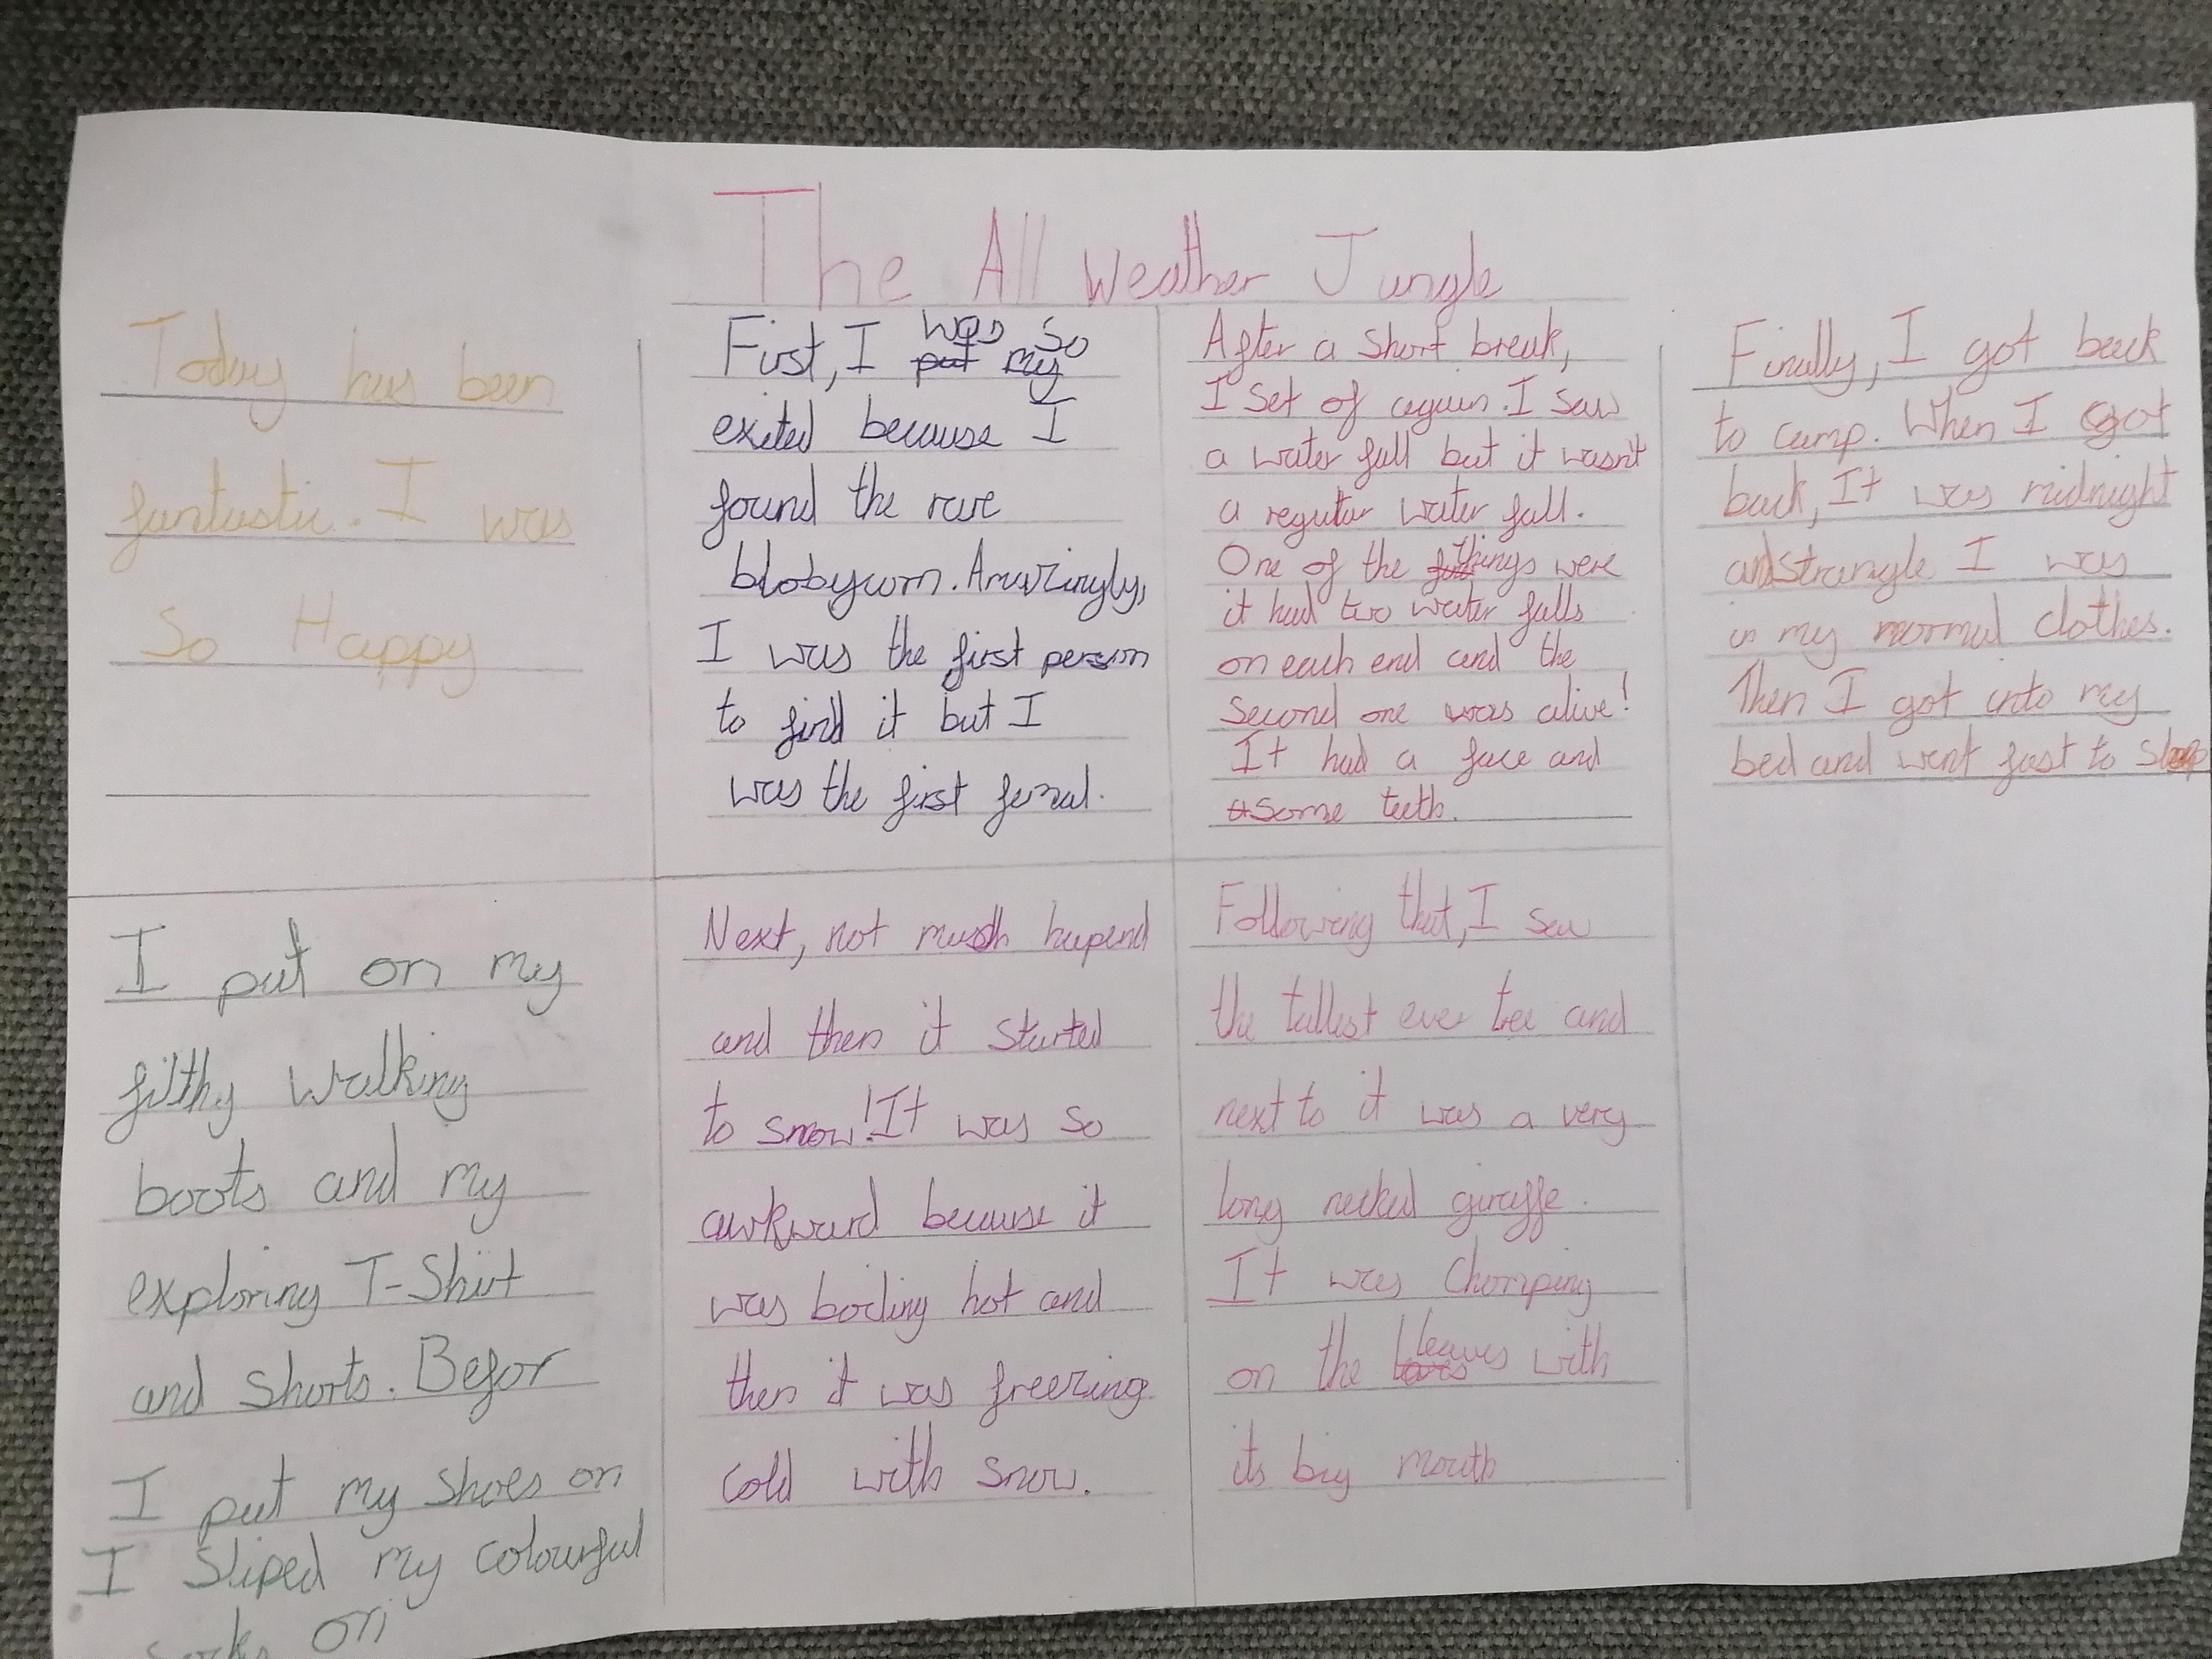 The All Weather Jungle
Today has been
fantastic. I was
So Happy
I put on my
filthy walking
boots and my
exploring T-Shirt
and shorts. Befor
I put my shoes on
I Sliped my colourful
socks on
First, I was so
put my
exited because I
found the rare
blobycorn. Amazingly,
I was the first person
to find it but I
was the first femal.
Next, not much hapend
and then it started
to snow! It was so
awkward because it
was boiling hot and
then it was freezing
cold with snow.
After a short break,
I set of again. I saw
a water fall but it wasn't
a regular water fall.
One of the things were
it had two water falls
on each end and the
second one was alive!
It had a face and
some teeth.
Following that, I saw
the tallest ever tree and
next to it was a very
long necked giraffe.
It was Chomping
on the leaves with
its big mouth
Finally, I got back
to camp. When I got
back, It was midnight
and strangle I was
in my normal clothes.
Then I got into my
bed and went fast to sleep